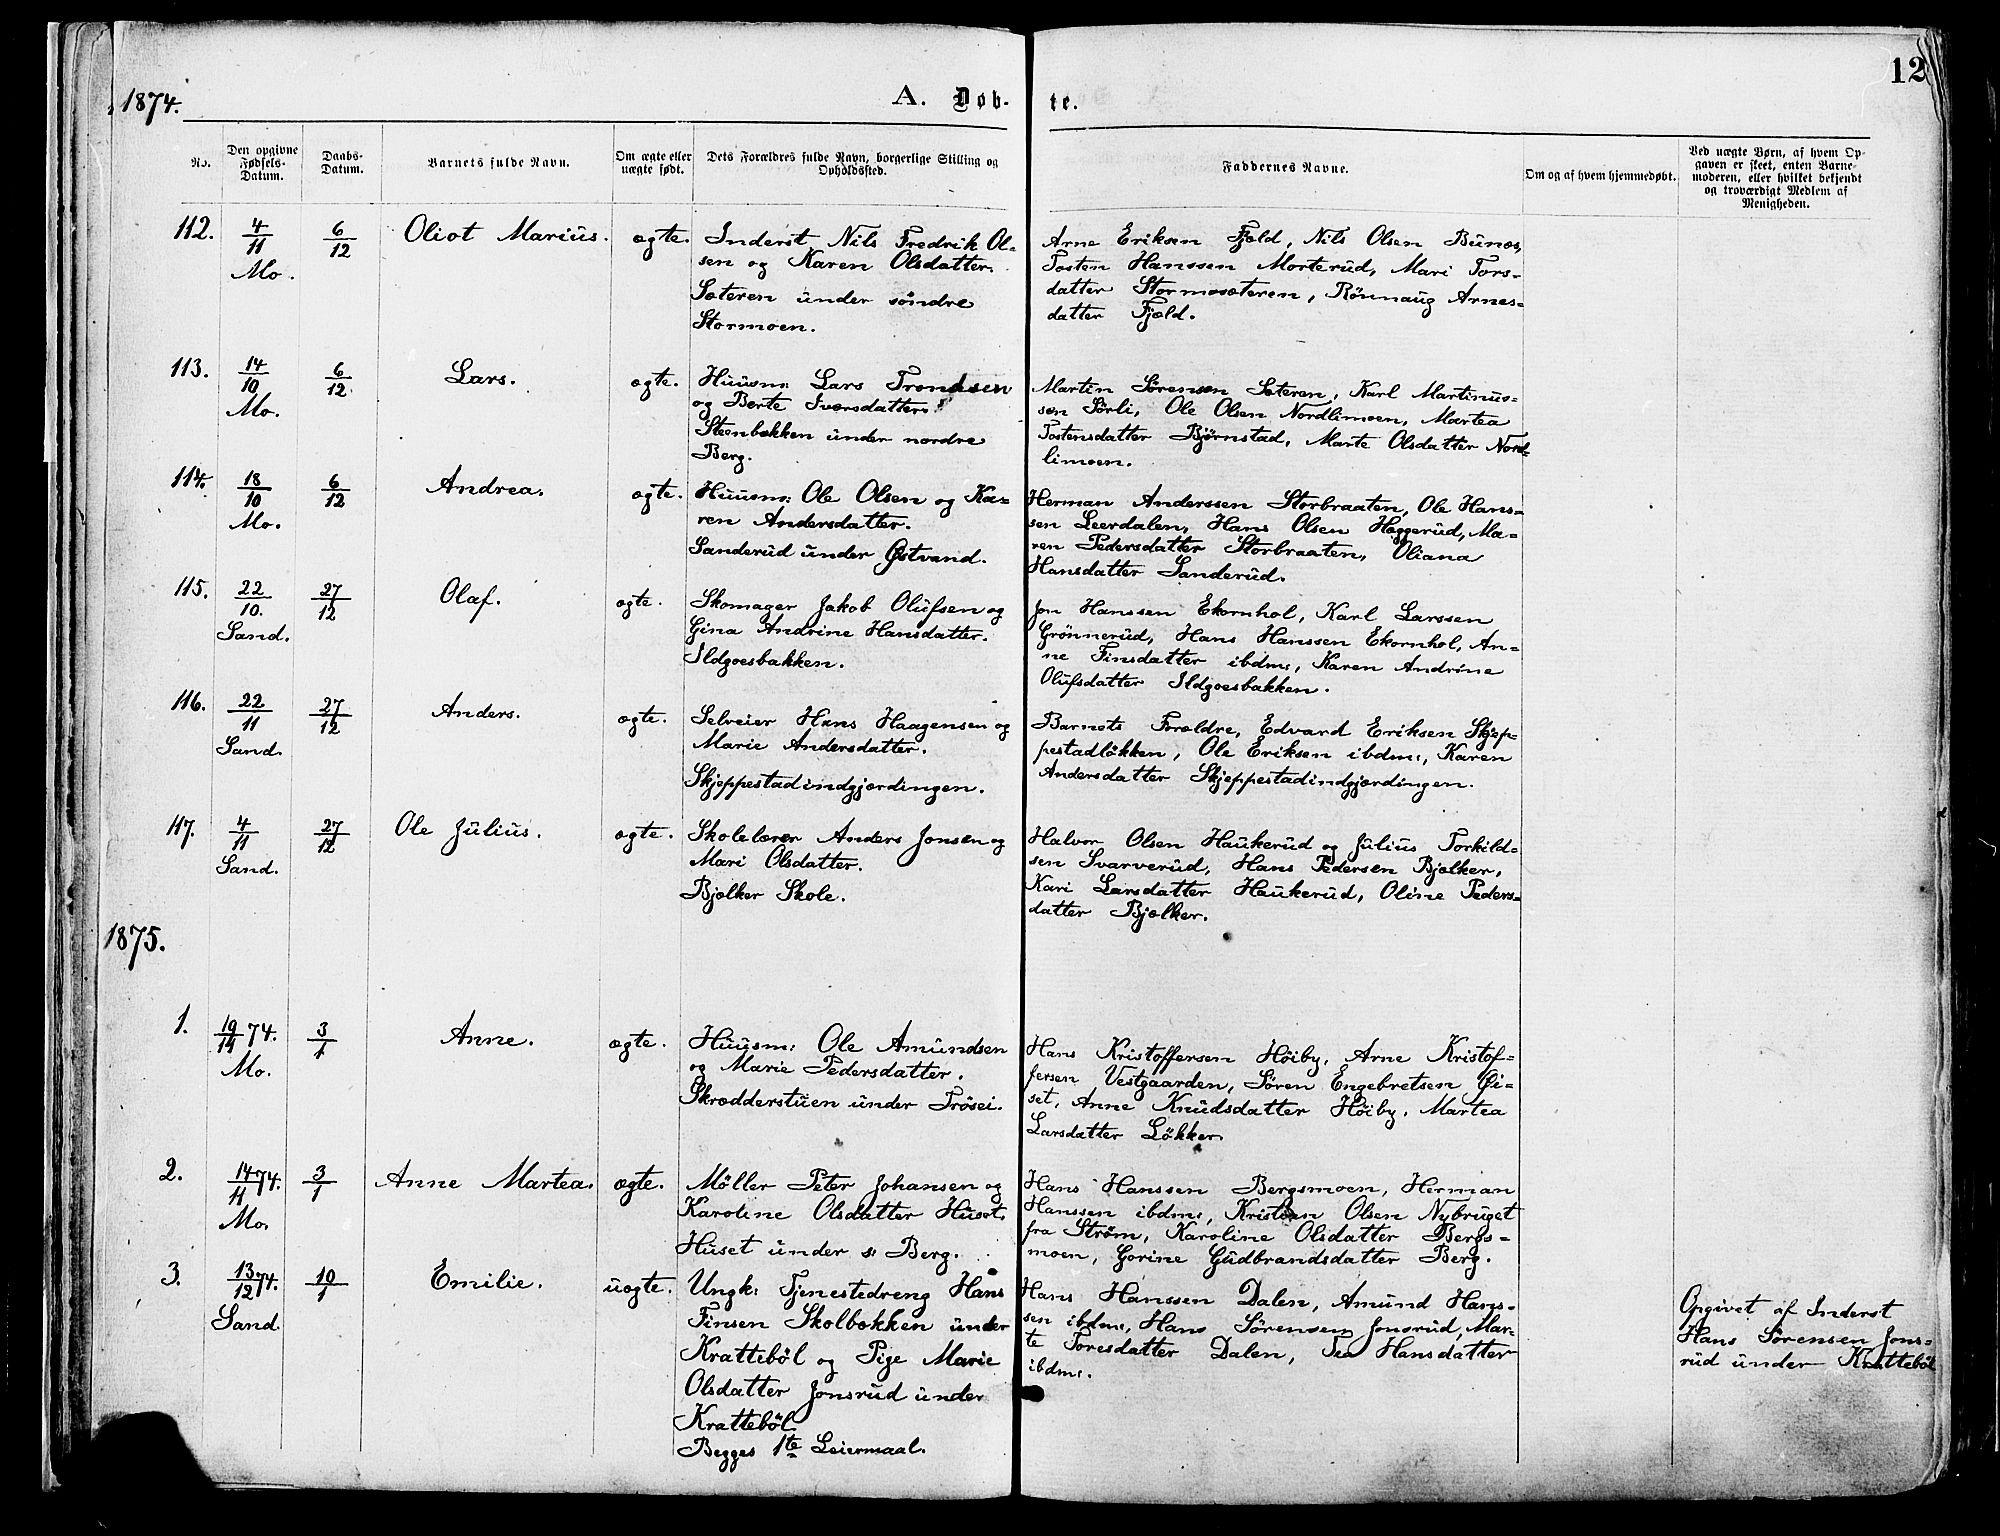 12
1874.
A. Døb-
te.
No.
Den opgivne
Fødsels-
Datum.
Daabs-
Datum.
Barnets fulde Navn.
Om ægte eller
uægte født.
Dets Forældres fulde Navn, borgerlige Stilling og
Opholdssted.
Faddernes Navne.
Om og af hvem hjemmedøbt.
Ved uægte Børn, af hvem Op-
gaven er skeet, enten Barne-
moderen, eller hvilket bekjendt
og troværdigt Medlem af
Menigheden.
112.
4/11
Mo.
6/12
Oliot Marius.
ægte.
Inderst Nils Fredrik Ol-
sen og Karen Olsdatter.
Sæteren under søndre
Stormoen.
Arne Eriksen Fjeld, Nils Olsen Bunæs,
Tosten Hanssen Morterud, Mari Tors-
datter Stormosæteren, Rönnaug Arnes-
datter Fjeld.
113.
14/10
Mo.
6/12
Lars.
ægte.
Huusm: Lars Trondsen
og Berte Iversdatter.
Steenbækken under nordre
Berg.
Martin Sörensen Sæteren, Karl Martinus-
sen Sörli, Ole Olsen Nordlimoen, Martea
Tostensdatter Bjørnstad, Marte Olsdatter Nord-
limoen.
114.
18/10
Mo.
6/12
Andrea.
ægte.
Huusm: Ole Olsen og Ka-
ren Andersdatter.
Sanderud under Østvand.
Herman Anderssen Storbraaten, Ole Hans-
sen Leerdalen, Hans Olsen Heggerud, Ma-
ren Pedersdatter Storbraaten, Oliana
Hansdatter Sanderud.
115.
22/10.
Sand.
27/12
Olaf.
ægte.
Skomager Jakob Olufsen og
Gina Andrine Hansdatter.
Ildgoesbakken.
Jon Hanssen Ekornhol, Karl Larssen
Grönnerud, Hans Hanssen Ekornhol, An-
ne Finsdatter ibdm:, Karen Andrine
Olufsdatter Ildgoesbakken.
116.
22/11
Sand.
27/12
Anders.
ægte.
Selveier Hans Haagensen og
Marie Andersdatter.
Skjeppestadindgjærdingen.
Barnets Forældre, Edvard Eriksen Skjep-
pestadløkken, Ole Eriksen ibdm:, Karen
Andersdatter Skjeppestadindgjærdingen.
117.
4/11
Sand.
27/12
Ole Julius.
ægte.
Skolelærer Anders Jonsen og
Mari Olsdatter.
Bjælker Skole.
Halvor Olsen Haukerud og Julius Torkild-
sen Svarverud, Hans Pedersen Bjælker,
Kari Larsdatter Haukerud, Oline Peders-
datter Bjælker.
1875.
1.
19/11 74.
Mo.
3/1
Anne.
ægte.
Huusm: Ole Amundsen
og Marie Pedersdatter.
Skrædderstuen under Trösei.
Hans Kristoffersen Höiby, Arne Kristof-
fersen Vestgaarden, Sören Engebretsen Öi-
set, Anne Knudsdatter Höiby, Martea
Larsdatter Lökker.
2.
14/11 74.
Mo.
3/1
Anne Martea.
ægte.
Møller Peter Johansen og
Karoline Olsdatter Huset.
Huset under s: Berg.
Hans Hanssen Bergsmoen, Herman
Hanssen ibdm:, Kristian Olsen Nybruget
fra Ström, Karoline Olsdatter Bergs-
moen, Gorine Gudbrandsdatter Berg.
3.
13/12 74.
Sand
10/1
Emilie.
uægte.
Ungk: Tjenestedreng Hans
Finsen Skolbækken under
Kratteböl og Pige Marie
Olsdatter Jonsrud under
Kratteböl
Begges 1te Leiermaal.
Hans Hanssen Dalen, Amund Hans-
sen ibdm:, Hans Sörensen Jonsrud, Mar-
te Toresdatter Dalen, Hansdatter
ibdm:.
Opgivet af Inderst
Hans Sörensen Jons-
rud under Kratteböl